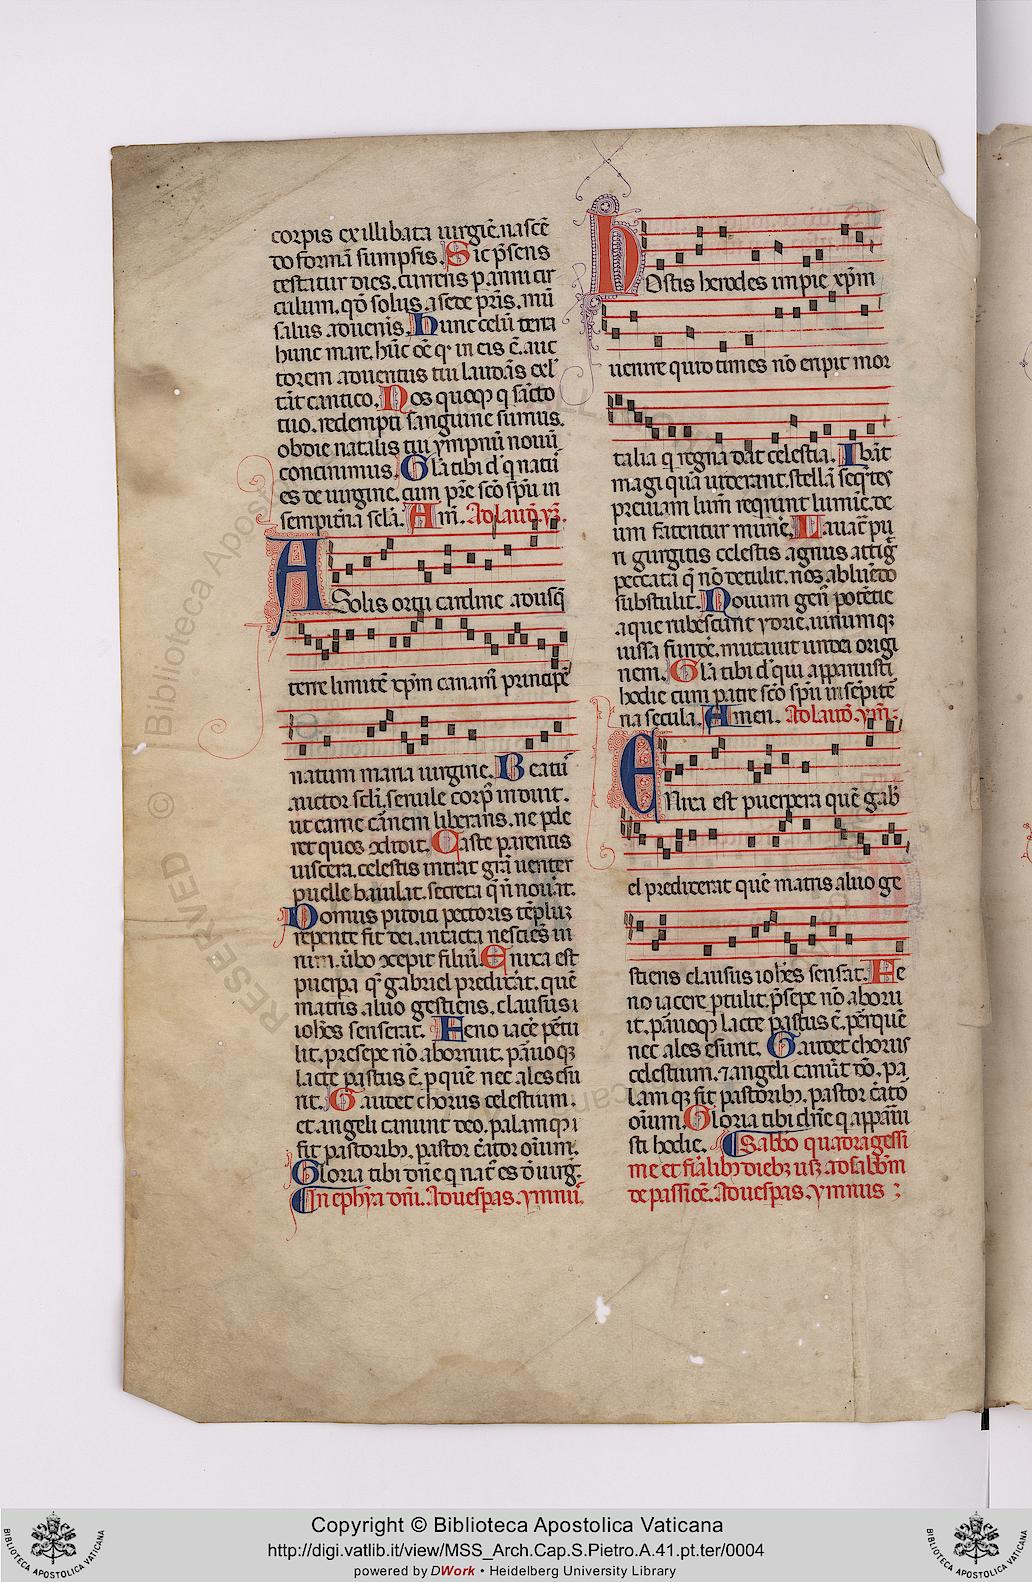 corpis ex illibata uirgiē. nascē
do formā sumpsis. Sic p̄sens
testatur dies. currens p anni cir
culum. qđ solus a sede pr̄is. mū
di salus adueneris. Hunc celū terra
hunc mare. hūc oē q in eis ē. auc
torem aduentus tui laudās exl
tāt cantico. Nos quoqꝫ q sācto
tuo. redempti sanguine sumus.
ob die natalis tui ympnū nouū
concinimus. Glā tibi dn̄e q natus
es de uirgine. cum pr̄e sc̄o sp̄u in
sempitīa sclā. Am̄. Ad laud̄. yꝫ.
A Solis ortu cardine adusqꝫ
terre limitē xp̄m canam̄ principē
natum maria uirgine. Beatus
auctor scl̄i. seruile corpꝰ induit.
ut carne cārnem liberans. ne pde
ret quos ꝯdidit. Caste parentis
uiscera. celestis intrat gr̄a uenter
puelle baiulat. secreta q̄ n̄ nouāt.
Domus pudici pectoris tēpluꝫ
repente fit dei. intacta nesciēs ui
rum. ūbo ꝯcepit filiū. Enixa est
puerpa q̄ gabriel predixāt. quē
matris aluo gestiens. clausus i
iohēs senserat. Feno iacē ptu
lit. presepe nō abornuit. paruoqꝫ
lacte pastus ē. p quē nec ales esu
rit. Gaudet chorus celestium.
et angeli canunt deo. palamqꝫ i
fit pastoribꝫ. pastor cāitor oīum.
Gloria tibi dn̄e q natꝰ es đ uirḡ.
In ephyā dn̄i. Ad uesp̄as. ymnū.
Hostis herodes impie xp̄m
uenire quid times nō eripit mor
talia q regna dat celestia. Ibāt
magi quā uiderant. stellā seqn̄tes
preuiam lum̄ requnt lumīe. de
um fatentur munē. Lauac̄ pu
ri gurgitis celestis agnus attiḡ
peccata q̄ nō detulit. nos abluēdo
substulit. Nouum genꝰ potētie
aque rubescunt ydrie. uinumqꝫ
iussa fundē. mutauit unda origi
nem. Glā tibi dn̄e qui apparuisti
hodie cum patre sc̄o sp̄u in sēpitē
na secula. Amen. Ad laud̄. ym̄.
Enixa est puerpera quē gab̄
el predixerat quē matris aluo ge
stiens clausus iohēs sensāt. Fe
no iacere ptulit. p̄sepe nō aboru
it. paruoqꝫ lacte pastus ē. p̄ quē
nec ales esurit. Gaudet chorus
celestium. ⁊ angeli canūt do. pa
lamqꝫ fit pastoribꝫ. pastor cāto
oīum. Gloria tibi dn̄e q apparui
sti hodie. Sabbo quadragessi
me et feriālibꝫ diebꝫ usqꝫ ad sabbm̄
de passiōē. Ad uespas. ymnus
© Biblioteca Apostolica Vaticana
RESERVED
Copyright © Biblioteca Apostolica Vaticana
http://digi.vatlib.it/view/MSS_Arch.Cap.S.Pietro.A.41.pt.ter/0004
powered by DWork • Heidelberg University Library
BIBLIOTECA APOSTOLICA VATICANA
BIBLIOTECA APOSTOLICA VATICANA